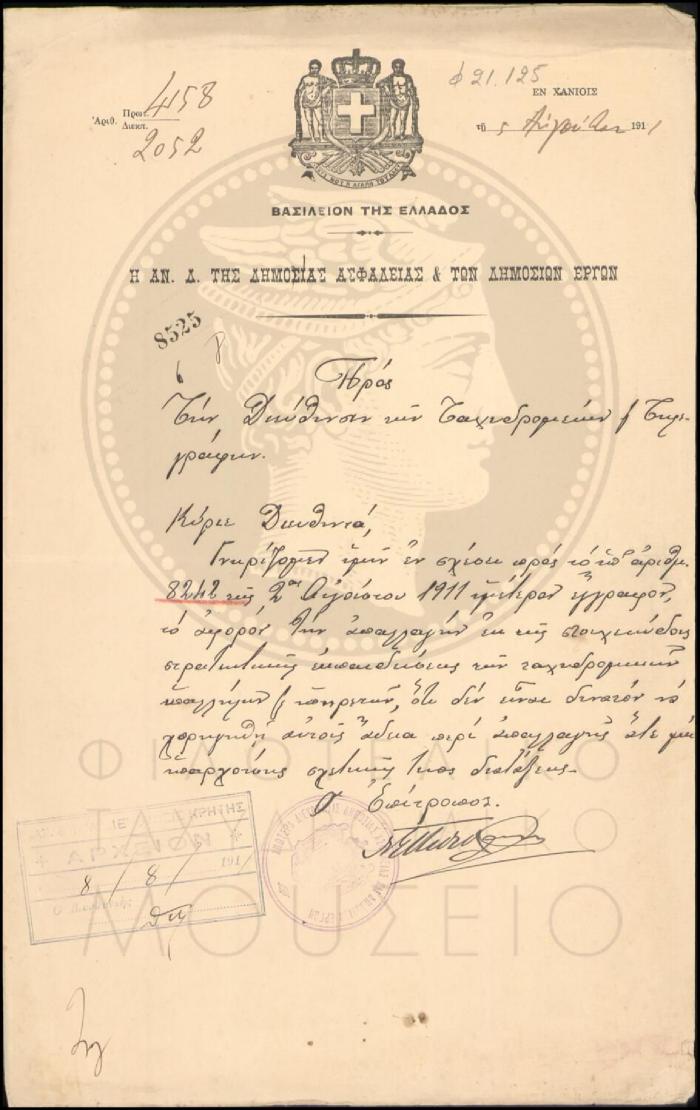 φ 21.125
Πρωτ. 4158
Ἀριθ.
Διεκπ. 2052
ΕΝ ΧΑΝΙΟΙΣ
τῇ 5 Αὐγούστου 1911
ΒΑΣΙΛΕΙΟΝ ΤΗΣ ΕΛΛΑΔΟΣ
Η ΑΝ. Δ. ΤΗΣ ΔΗΜΟΣΙΑΣ ΑΣΦΑΛΕΙΑΣ & ΤΩΝ ΔΗΜΟΣΙΩΝ ΕΡΓΩΝ
8525
Πρός
Τήν Διεύθυνσιν τῶν Ταχυδρομείων & Τηλε-
γράφων.
Κύριε Διευθυντά,
Γνωρίζομεν ὑμῖν ἐν σχέσει πρός τό ὑπ' ἀριθμ.
8242 τῆς 2ας Αὐγούστου 1911 ὑμέτερον ἔγγραφον,
τό ἀφορόν τήν ἀπαλλαγήν ἐκ τῆς στοιχειώδους
στρατιωτικῆς ἐκπαιδεύσεως τῶν ταχυδρομικῶν
ὑπαλλήλων & ὑπηρετῶν, ὅτι δέν εἶναι δυνατόν νά
χορηγηθῇ αὐτοῖς ἄδεια περί ἀπαλλαγῆς ἅτε μή
ὑπαρχούσης σχετικῆς τινος διατάξεως.
Ὁ Ἐπίτροπος.
ΚΡΗΤΗΣ
ΑΡΧΕΙΟΝ
8 / 8 / 191
ΦΙΛΟΤΕΛΙΚΟ
ΤΑΧΥΔΡΟΜΙΚΟ
ΜΟΥΣΕΙΟ